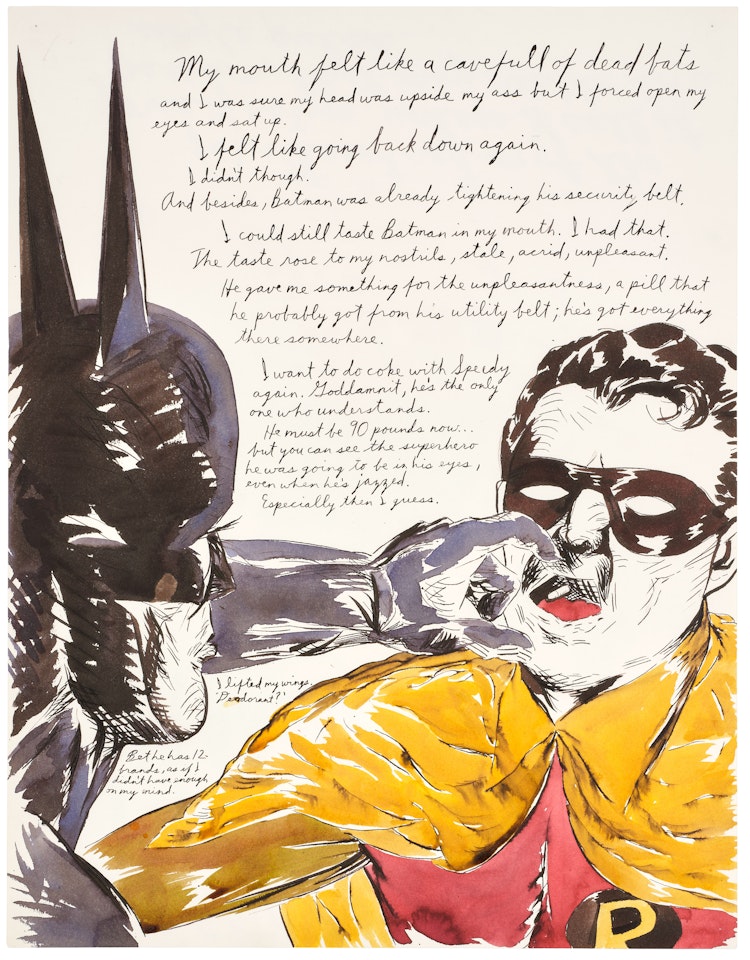 My mouth felt like a cavefull of dead bats
and I was sure my head was upside my ass but I forced open my
eyes and sat up.
I felt like going back down again.
I didn't though.
And besides, Batman was already tightening his security belt.
I could still taste Batman in my mouth. I had that.
The taste rose to my nostrils, stale, acrid, unpleasant.
He gave me something for the unpleasantness, a pill that
he probably got from his utility belt; he's got everything
there somewhere.
I want to do coke with Speedy
again. Goddamnit, he's the only
one who understands.
He must be 90 pounds now...
but you can see the superhero
he was going to be in his eyes,
even when he's jazzed.
Especially then I guess.
I lifted my wings.
'Deodorant?'
Bet he has 12
brands, as if I
didn't have enough
on my mind.
R